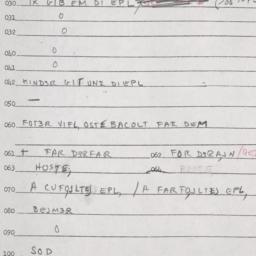 030 IK GIB EM DI EPL,
031 0
032 0
040 0
041 0
042 MINDSR GIT UNZ DI EPL
050 —
060 FOTSR VIFL OSTE BACOLT FAR DEM
061 + FAR DSRFAR 062 FOR DSRAJN
063 HOSTE,
070 A CUFOJLTS EPL, /A FARFOJLTS EPL,
080 BEJMSR
090 0
100 SOD